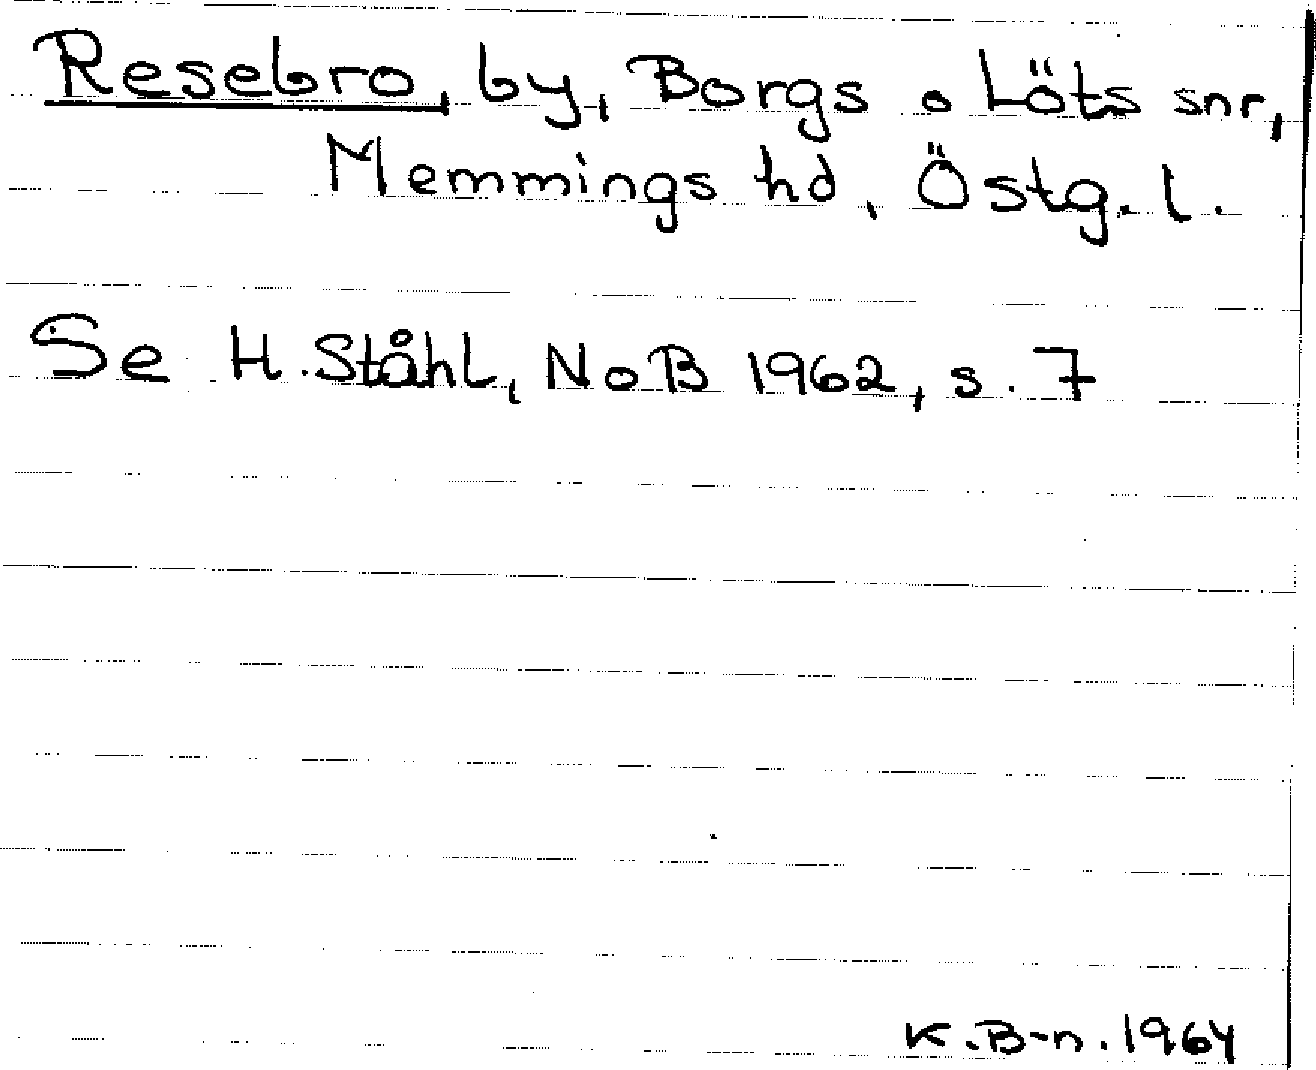 Resebro, by, Borgs o Löts snr,
Memmings hd, Östg. l.
Se H. Ståhl, NoB 1962, s. 7
K. B-n. 1964